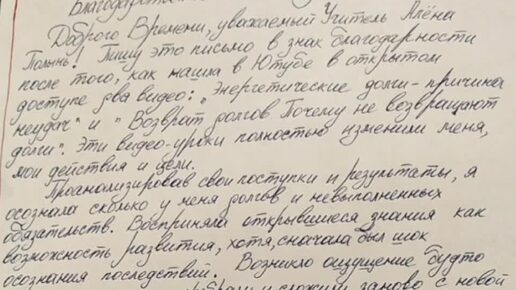 Благодарствен
Доброго Времени, уважаемый Учитель Алёна
Полынь! Пишу это письмо в знак благодарности
после того, как нашла в Ютубе в открытом
доступе два видео: "Энергетические долги - причина
неудач" и "Возврат долгов Почему не возвращают
долги". Эти видео-уроки полностью изменили меня,
мои действия и цели.
Проанализировав свои поступки и результаты, я
осознала сколько у меня долгов и невыполненных
обязательств. Восприняла открывшиеся знания как
возможность развития, хотя, сначала был шок
осознания последствий. Возникло ощущение будто
и сложили заново с новой